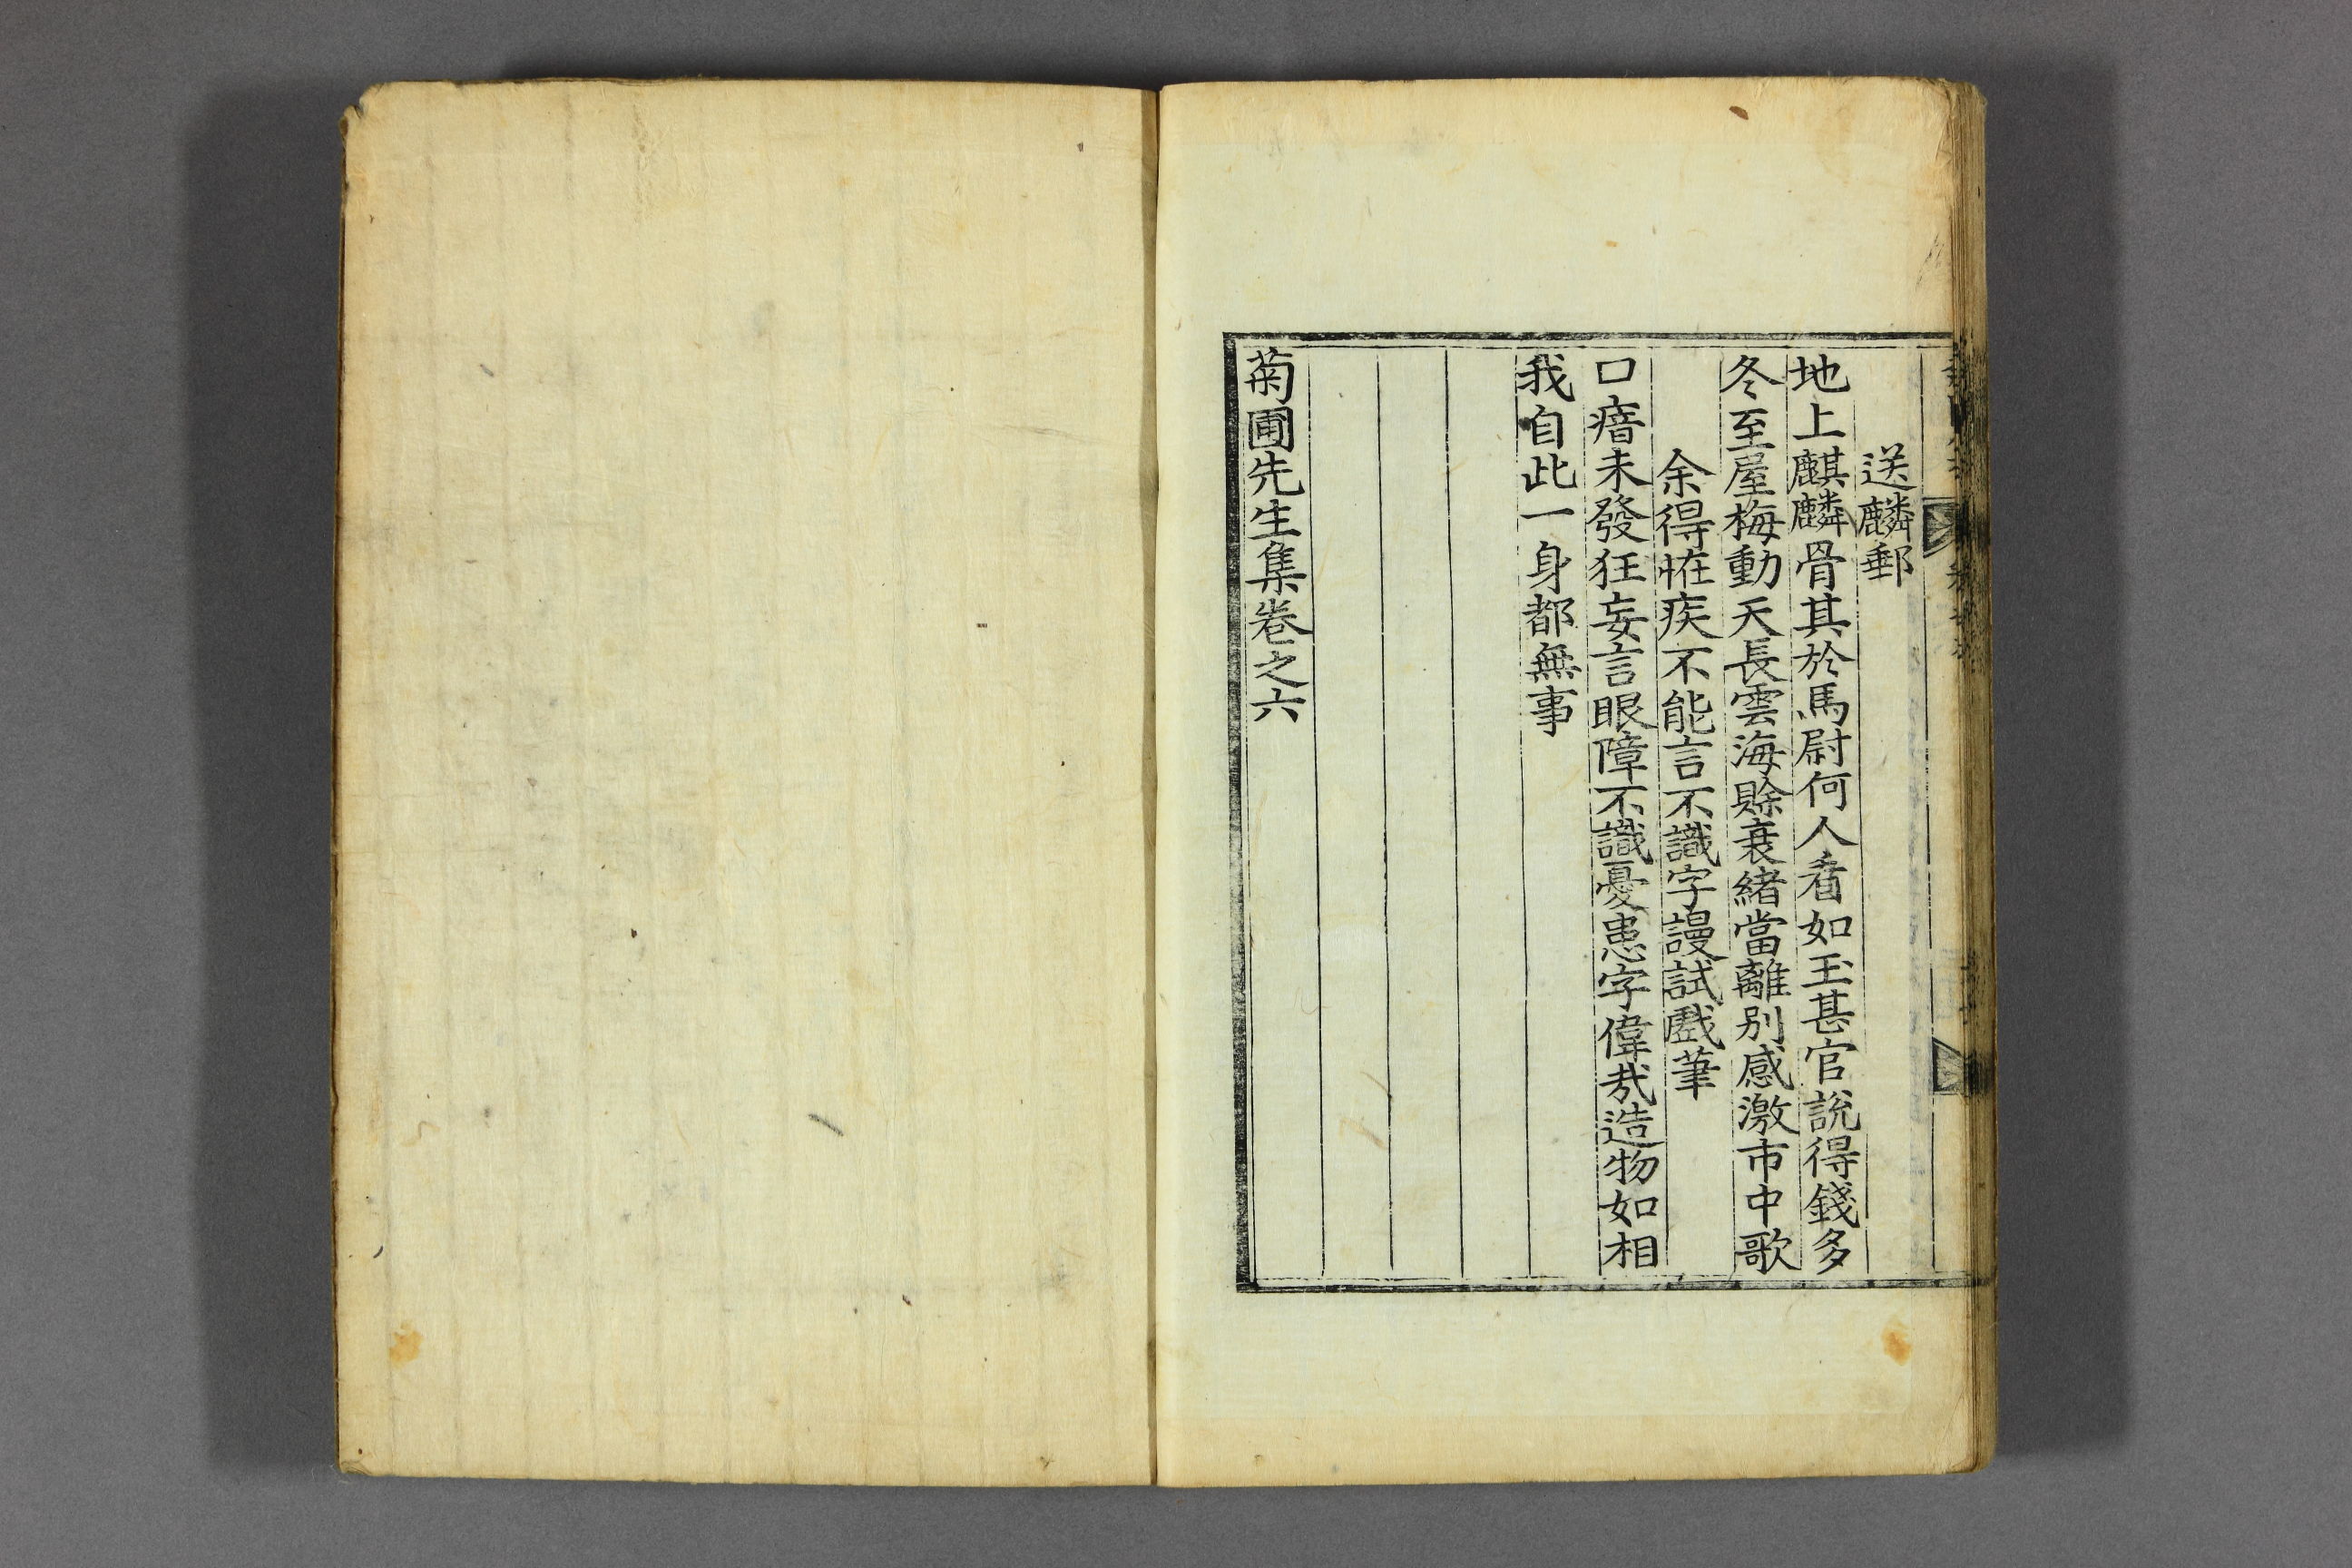 送麟郵
地上麒麟骨其於馬尉何人看如玉甚官說得錢多
冬至屋梅動天長雲海賖衰緖當離別感激市中歌
余得恠疾不能言不識字謾試戲筆
口瘖未發狂妄言眼障不識憂患字偉哉造物如相
我自此一身都無事
菊圃先生集卷之六